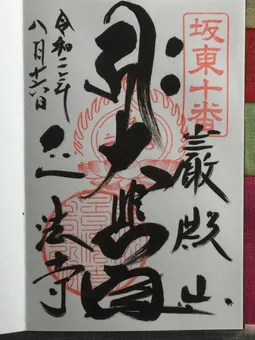 坂東十番
巌殿山
大悲
正法寺
令和
八月十六日